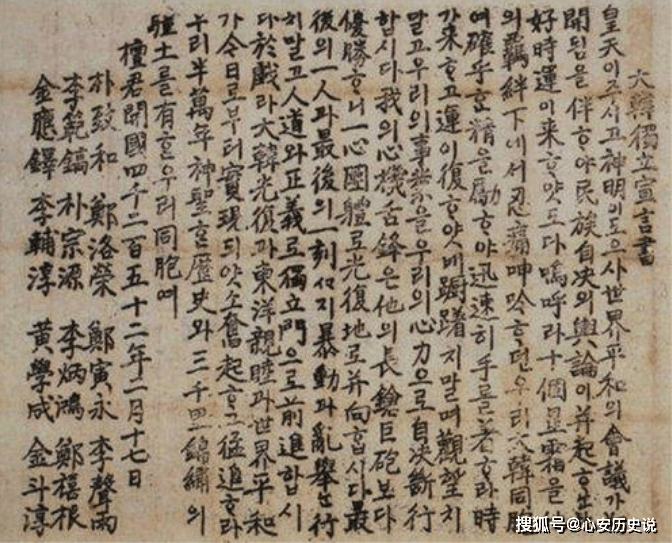 大韓獨立宣言書
皇天이주시고神明이도으사世界平和의會議가
開됨을伴ᄒᆞ야民族自决의輿論이幷起ᄒᆞ
好時運이来ᄒᆞ얏도다嗚呼라十個星霜을
의羈絆下에서忍痛呻吟ᄒᆞ던우리大韓同胞
여確乎ᄒᆞᆫ精을勵ᄒᆞ야迅速히手를着ᄒᆞ라時
가来ᄒᆞ고運이復ᄒᆞ얏네躕躇치말며觀望치
말고우리의事業을우리의心力으로自决断行
합시다我의心機舌鋒은他의長鎗巨砲보다
優勝ᄒᆞ니一心團體로光復地로幷向흡시다最
後의一人과最後의一刻ᄭᆞ지暴動과亂擧는行
치말고人道와正義로獨立門으로前進합시
다於戱라大韓光復과東洋親睦과世界平和
가今日로부터實現되얏소奮起ᄒᆞ고猛進ᄒᆞ라
우리半萬年神聖ᄒᆞᆫ歷史와三千里錦繡의
疆土를有ᄒᆞᆫ우리同胞여
檀君開國四千二百五十二年二月十七日
朴致和 鄭洛榮 鄭寅永 李聲雨
李範鎬 朴宗源 李炳鴻 鄭禧根
金應鐸 李輔淳 黃學成 金斗淳
搜狐号@心安历史说